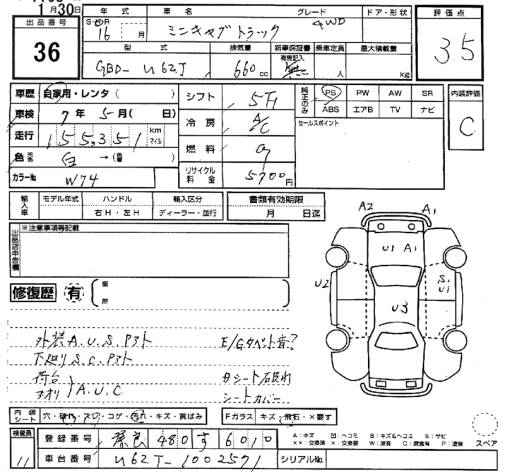 1月30日
出品番号 36
年式 車名 グレード ドア・形状 評価点
16 月 ミニキャブトラック 4WD 35
型式 排気量 新車保証書 乗車定員 最大積載量
GBD-U62T 660cc 無 人 kg
車歴 自家用・レンタ( )
車検 7年5月( 日)
走行 55,351 km マイル
色 白 →( )
カラーNo W74
シフト 5F
冷房 A/C
燃料 G
リサイクル料金 5700円
純正のみ PS PW AW SR
ABS エアB TV ナビ
セールスポイント
内装評価 C
輸入車 モデル年式 ハンドル 輸入区分
年 右H・左H ディーラー・並行
書類有効期限
月 日迄
出品店申告欄 ※注意事項等記載
修復歴 有
A2 A1
U1 A1
U2 U3 S1 U1
外装A.U.S.Pスト E/Gタペト音?
下廻りS.C.Pスト
荷台 アオリ A.U.C
Bシート破れ
シートカバー
内装シート 穴・破れ・スリ・コゲ・汚れ・キズ・黄ばみ
Fガラス キズ・飛石・×要す
スペア
検査員 11
登録番号 480す 6010
車台番号 U62T-1002571 シリアルNo.
A:キズ U:ヘコミ B:キズ&ヘコミ S:サビ
××:交換済 ×:交換要 W:波有 C:腐食有 P:塗装